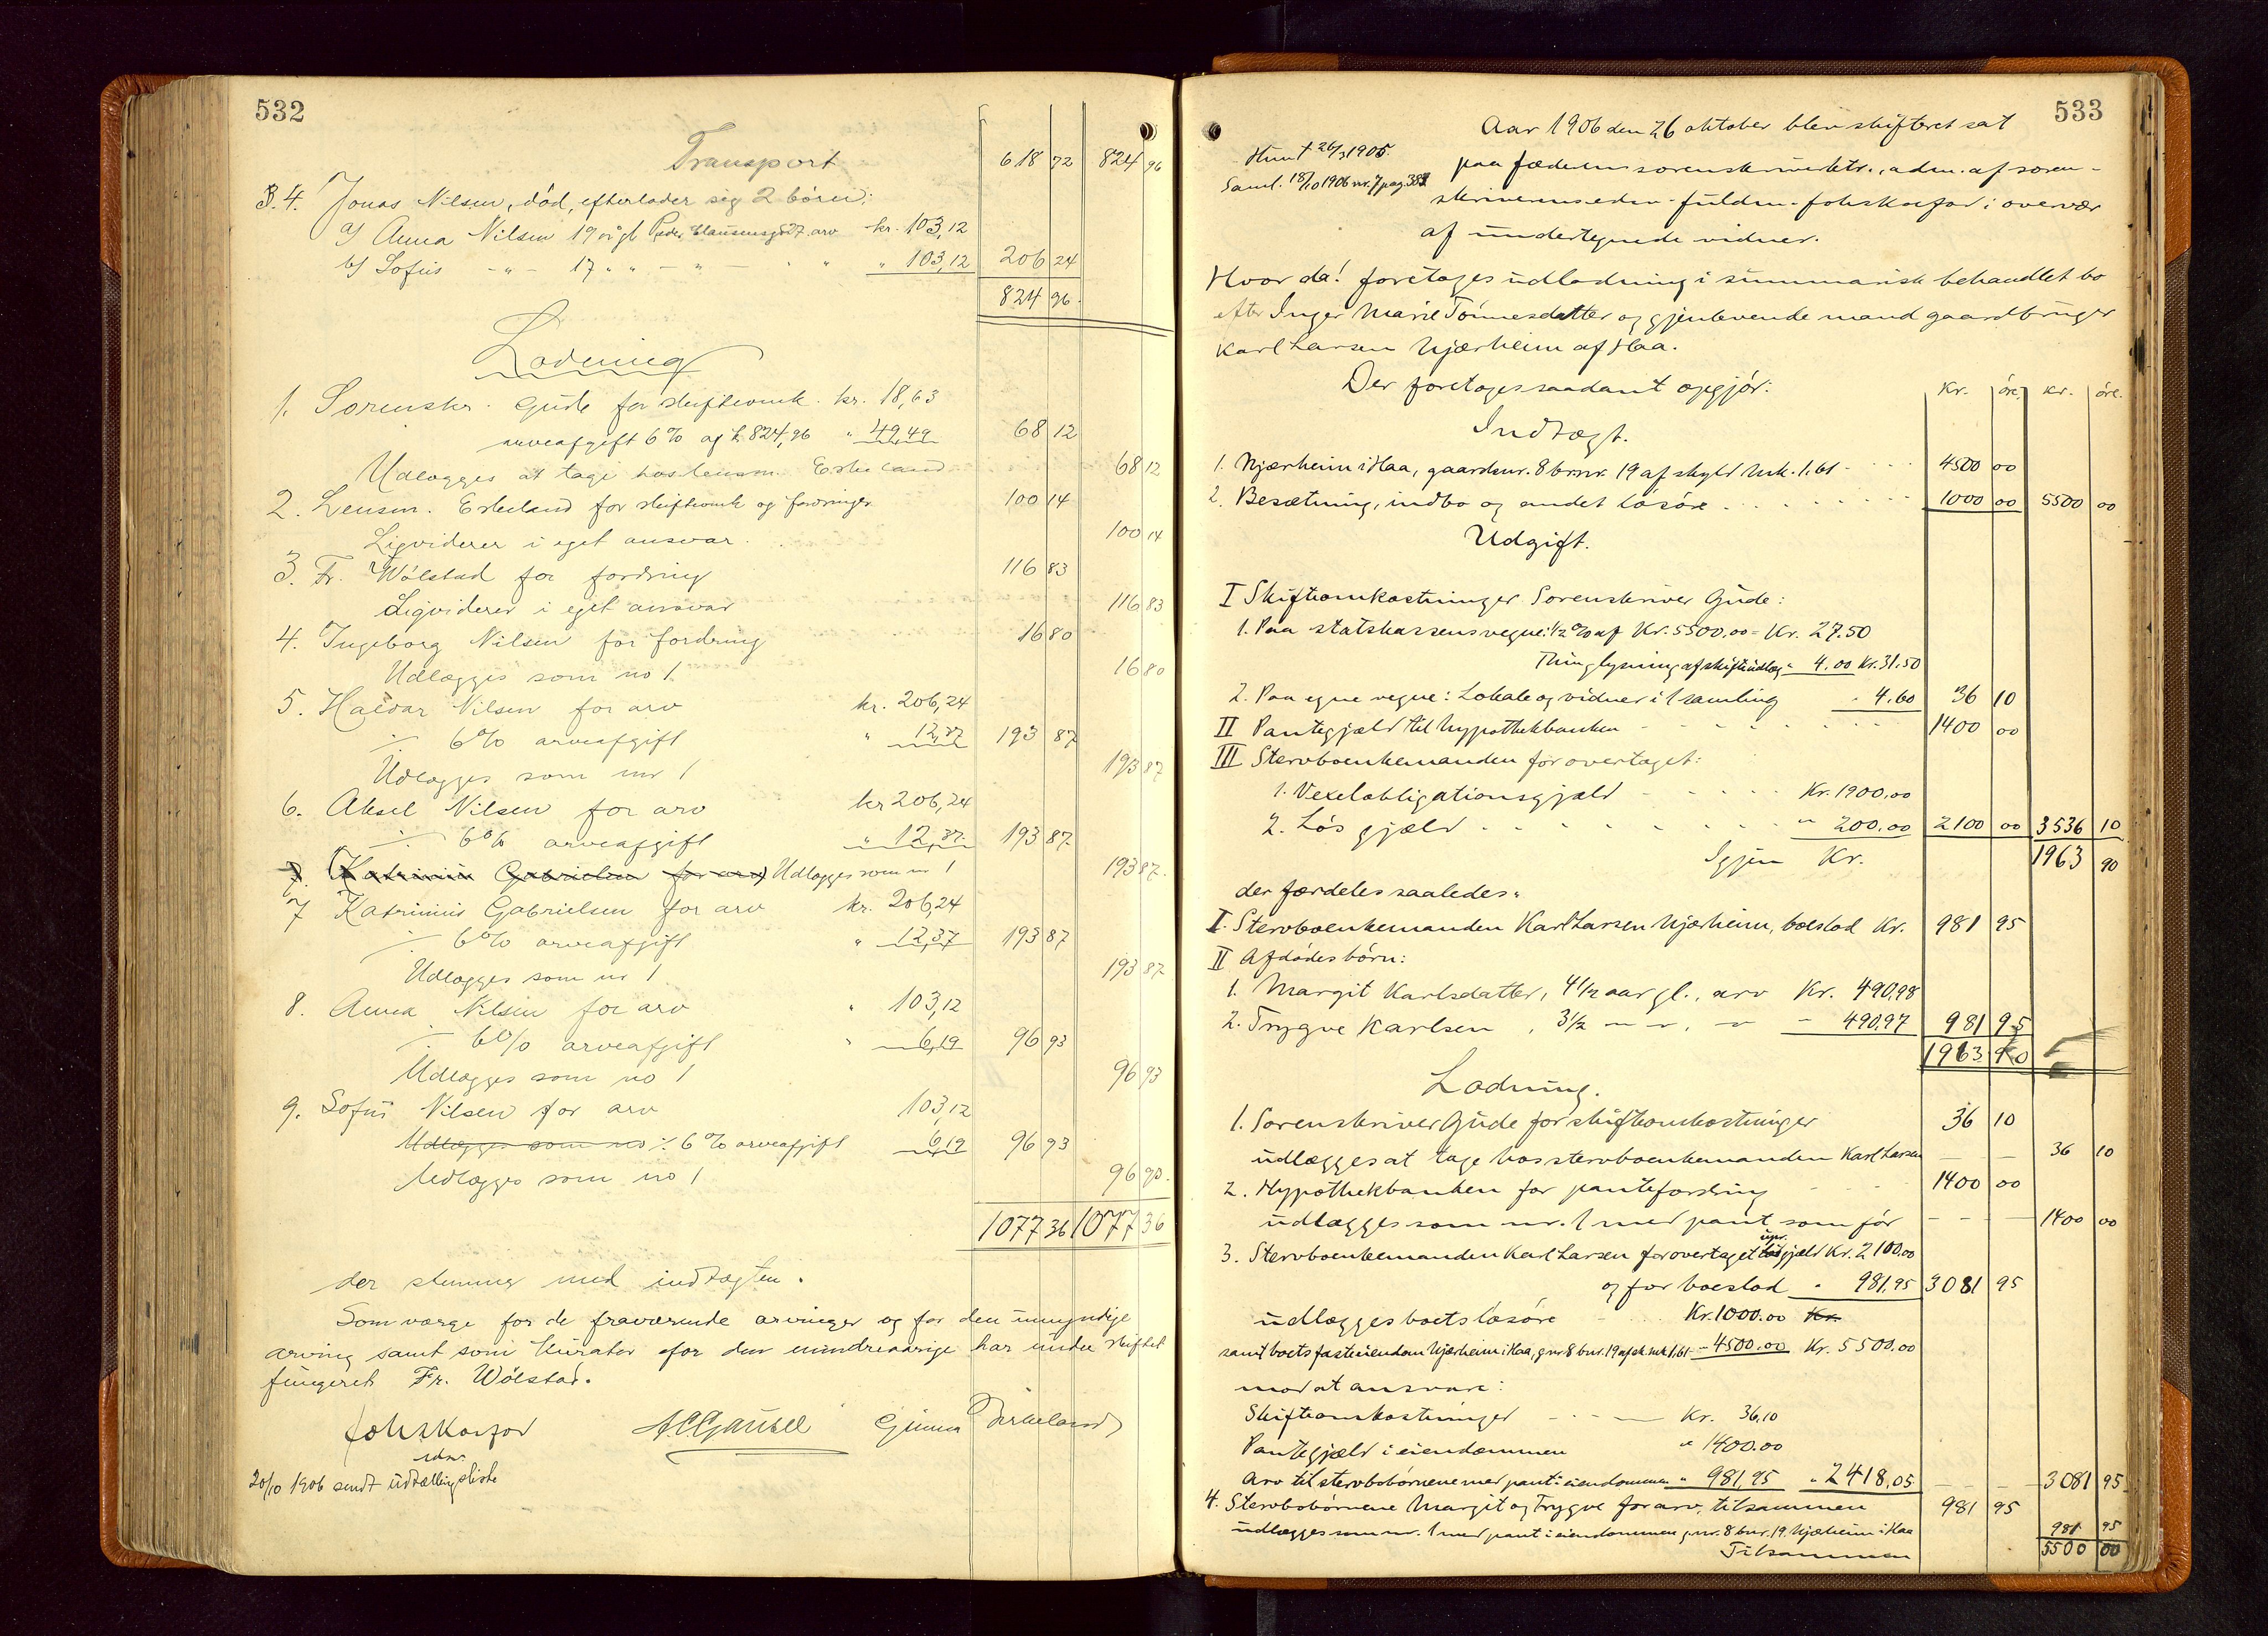 532
Transport 618 72 824 96
3.4. Jonas Nilsen, død, efterlader sig 2 børn:
a) Anna Nilsen 19 år gl. Peder Claussensgd 27. arv kr. 103,12
b) Sofus -"- 17 " " - " " " " 103,12 206 24
824 96.
Lodning
1. Sorenskr. Gude for skifteomk. kr. 18,63
arveafgift 6% af k 824,96 " 49,49 68 12
Udlægges at tage hos lensm. Eskeland 68 12
2. Lensm. Eskeland for skifteomk og fordringer 100 14
Ligviderer i eget ansvar. 100 14
3. Fr. Wølstad for fordring 116 83
Ligviderer i eget ansvar 116 83
4. Ingeborg Nilsen for fordring 16 80
Udlægges som no 1. 16 80
5. Haldar Nilsen for arv kr. 206,24
÷ 6% arveafgift " 12,37 193 87
Udlægges som nr 1 193 87
6. Aksel Nilsen for arv kr 206,24
÷ 6% arveafgift " 12,37. 193 87.
7. (Katrinius Gabrielsen for arv) Udlægges som nr 1 193 87.
7 Katrinius Gabrielsen for arv kr. 206,24
÷ 6% arveafgift " 12,37 193 87
Udlægges som nr 1 193 87
8. Anna Nilsen for arv " 103,12
÷ 6% arveafgift " 6,19 96 93
Udlægges som no 1 96 93
9. Sofus Nilsen for arv 103,12
Udlægges som no ÷ 6% arveafgift 6,19 96 93
Udlægges som no 1 96 90.
1077 36 1077 36
der stemmer med indtægten.
Som værge for de fraværende arvinger og for den umyndige
arving samt som kurator for den mindreaarige har under skiftet
fungeret Fr. Wølstad.
Joh Skorfad A.C. Gausel Gunnar Birkeland
edsv.
20/10 1906 sendt udtællingsliste
533
Aar 1906 den 26 oktober blev skifteret sat
Hun † 26/3 1905.
paa Jæderens sorenskriverktr., adm. af soren-
Saml. 18/10 1906 nr. 7 pag. 383
skriverens edsv. fuldm. Joh Skorfad i overvær
af undertegnede vidner.
Hvor da! foretages udlodning i summarisk behandlet bo
efter Inger Marie Tønnesdatter og gjenlevende mand gaardbruger
Karl Larsen Njærheim af Haa.
Der foretages saadant opgjør: Kr. øre. Kr. øre.
Indtægt.
1. Njærheim i Haa, gaardsnr. 8 brnr. 19 af skyld mk. 1.61 4500 00
2. Besætning, indbo og andet løsøre 1000 00 5500 00
Udgift.
I Skifteomkostninger Sorenskriver Gude:
1. Paa statskassens vegne: 1/2 % af Kr. 5500.00 = Kr. 27.50
Thinglysning af skifteudlæg " 4.00 Kr. 31.50
2. Paa egne vegne: Lokale og vidner i 1 samling " 4.60 36 10
II Pantegjæld til hypothekbanken 1400 00
III Stervboenkemanden for overtaget:
1. Vexelobligationsgjæld Kr. 1900.00
2. Løs gjæld " 200.00 2100 00 3536 10
Igjen Kr. 1963 90
der fordeles saaledes:
I. Stervboenkemanden Karl Larsen Njærheim, boeslod Kr. 981 95
II Afdødes børn:
1. Margit Karlsdatter, 4 1/2 aar gl., arv Kr. 490.98
2. Trygve Karlsen, 3 1/2 — " —, — " — 490.97 981 95
1963 90
Lodning.
1. Sorenskriver Gude for skifteomkostninger 36 10
udlægges at tage hos stervboenkemanden Karl Larsen 36 10
2. Hypothekbanken for pantefordring 1400 00
udlægges som nr. 1 med pant som før 1400 00
3. Stervboenkemanden Karl Larsen for overtaget løs upr. gjæld Kr. 2100.00
og for boeslod " 981,95 3081 95
udlægges boets løsøre Kr. 1000.00 Kr.
samt boets faste eiendom Njærheim i Haa, gnr 8 bnr. 19 af sk. mk 1,61 - 4500.00 Kr. 5500.00
mod at ansvare:
Skifteomkostninger Kr. 36,10
Pantegjæld i eiendommen " 1400.00
Arv til stervbobørnene med pant i eiendommen " 981,95 " 2418,05 3081 95
4. Stervbobørnene Margit og Trygve for arv, tilsammen 981 95
udlægges som nr. 1 med pant i eiendommen gnr. 8 bnr. 19. Njærheim i Haa 981 95
Tilsammen 5500 00